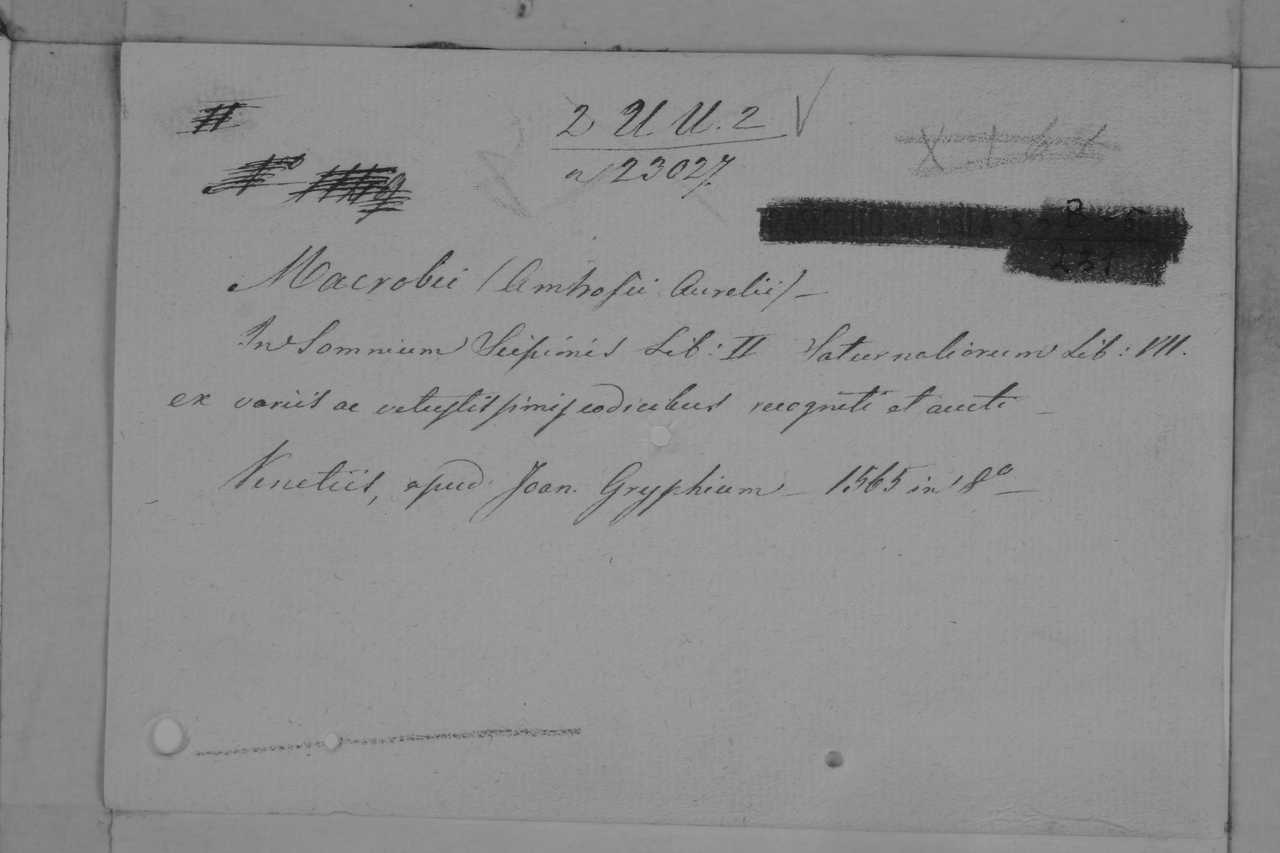 2 U U. 2 V
n 23027
Macrobii (Ambrosii Aurelii) –
In Somnium Scipionis Lib: II Saturnaliorum Lib: VII.
ex variis ac vetustissimis codicibus recogniti et aucti –
Venetiis, apud Joan. Gryphium – 1565 in 8º –